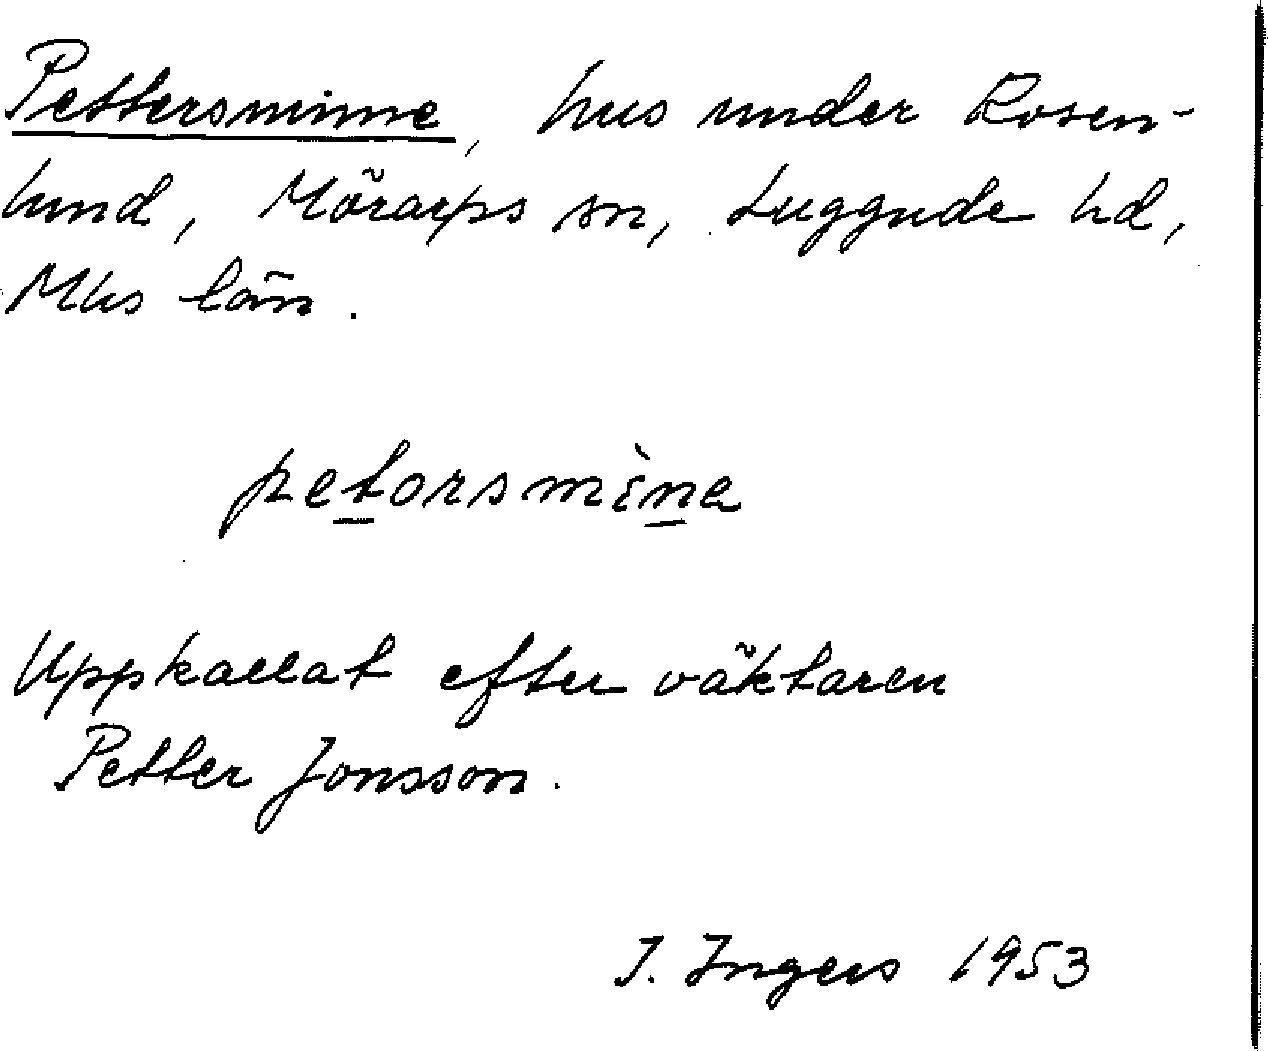 Pettersminne, hus under Rosen-
lund, Mörarps sn, Luggude hd,
Mhs län.
petorsmìna
Uppkallat efter väktaren
Petter Jonsson.
I. Ingers 1953